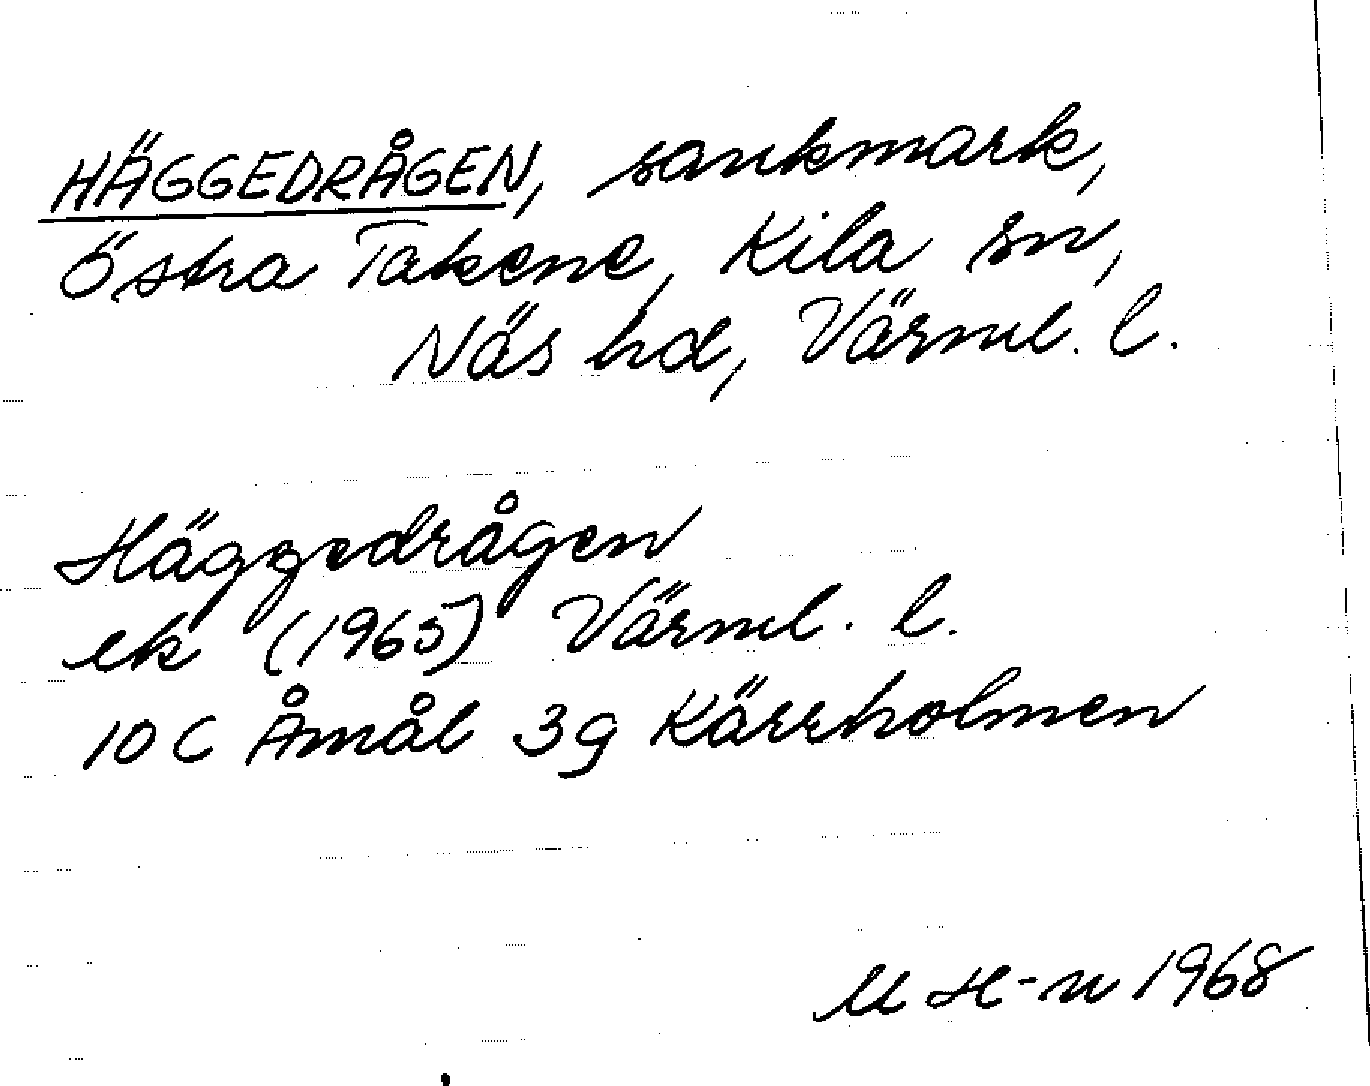 HÄGGEDRÅGEN, sankmark,
Östra Takene, Kila sn,
Näs hd, Värml. l.
Häggedrågen
ek (1965) Värml. l.
10 C Åmål 3g Kärrholmen
M H-n 1968